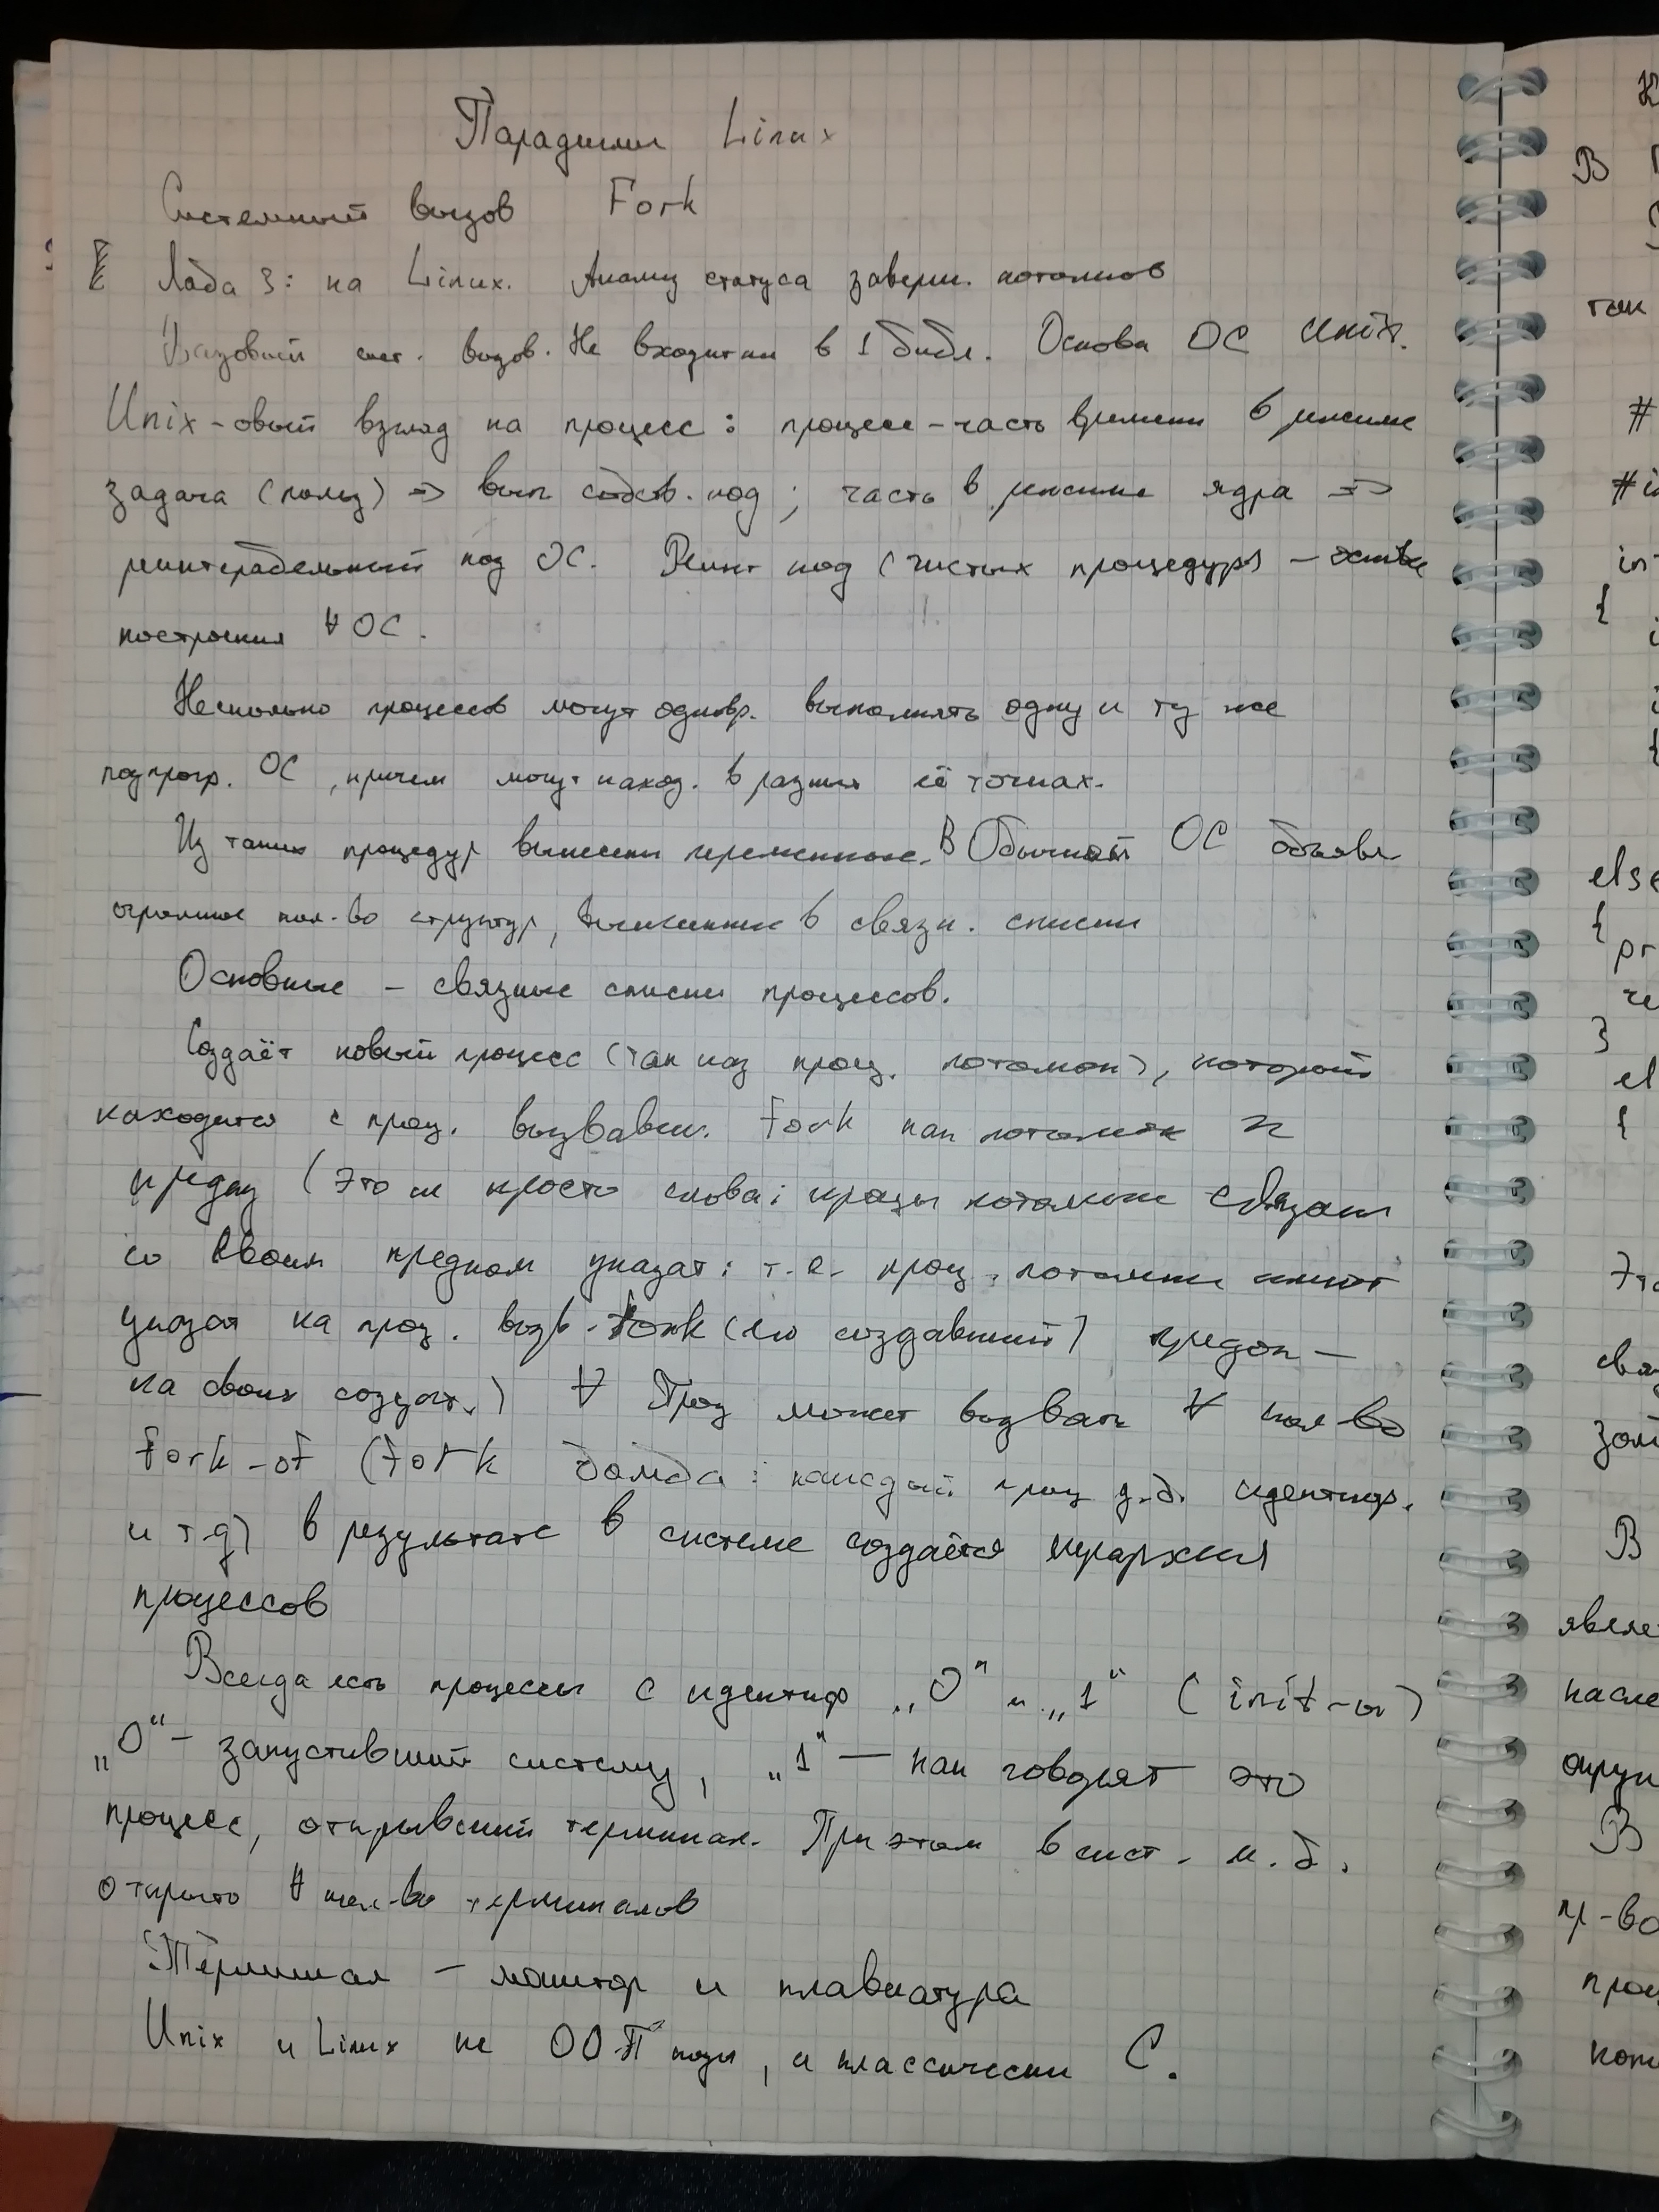 Парадигмы Linux
Системный вызов Fork
Лаба 3: на Linux. Анализ статуса заверш. потомков
Базовый сист. вызов. Не входит ни в 1 библ. Основа ОС Unix.
Unix-овый взгляд на процесс: процесс - часть времени в режиме
задача (польз) => вып собств. код; часть в режиме ядра =>
реинтерабельный код ОС. Реинт код (чистых процедур) -
построения ∀ ОС.
Несколько процессов могут одновр. выполнять одну и ту же
подпрогр. ОС, причем могут наход. в разных её точках.
Из таких процедур вынесены переменные. В Обычной ОС объявл
огромное кол-во структур, в связн. списки
Основные - связные списки процессов.
Создаёт новый процесс (так наз проц. потомок), который
находится с проц. вызвавш. fork как потомок и
предок (это не просто слова; процы потомки связаны
со своим предком указат: т.е. проц. потомки имеют
указат на проц. вызв. fork (его создавший) предок —
на своих создат.) ∀ Проц может вызвать ∀ кол-во
fork-of (fork бомба: каждый проц д.б. идентиф.
и т.д) в результате в системе создаётся иерархия
процессов
Всегда есть процессы с идентиф „0“ и „1“ (init-ы)
„0“ - запустивший систему, „1“ — как говорят это
процесс, открывший терминал. При этом в сист. м.б.
открыто ∀ кол-во терминалов
Терминал - монитор и клавиатура
Unix и Linux не ООП коды, а классически C.
К
В
так
#
#i
int
{
i
i
{
else
{
pr
}
el
{
Это
свя
В
явля
насле
окруж
В
пр-во
проц